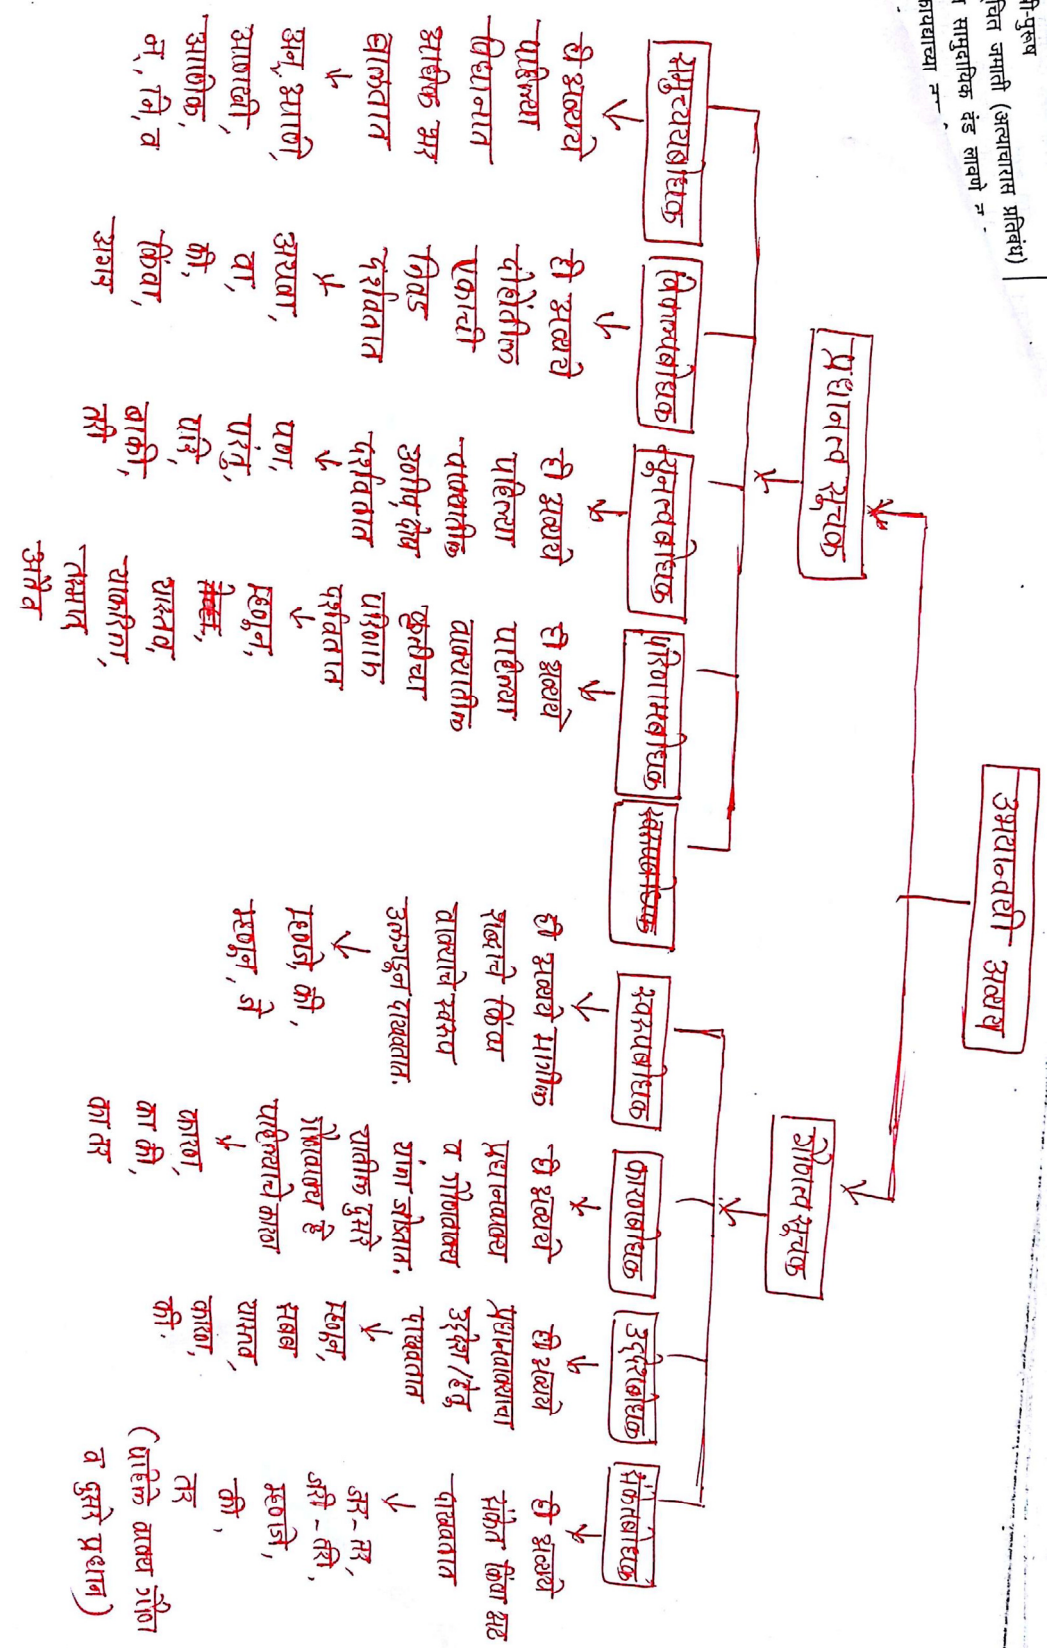 उभयान्वयी अव्यय
प्रधानत्व सूचक
गौणत्व सूचक
समुच्चयबोधक
ही अव्यये
पहिल्या
विधानात
अधिक भर
घालतात
अन्, आणि,
आणखी,
आणिक,
न्, नि, व
विकल्पबोधक
ही अव्यये
दोहोंतील
एकाची
निवड
दर्शवतात
अथवा,
वा,
की,
किंवा,
अगर
न्युनत्वबोधक
ही अव्यये
पहिल्या
वाक्यातील
उणीव, दोष
दर्शवितात
पण,
परंतु,
परि,
बाकी,
तरी
परिणामबोधक
ही अव्यये
पहिल्या
वाक्यातील
कृतीचा
परिणाम
दर्शवितात
म्हणून,
यास्तव,
याकरिता,
तस्मात्,
अतेव
स्वरूपबोधक
स्वरूपबोधक
ही अव्यये मागील
शब्दाचे किंवा
वाक्याचे स्वरूप
उलगडून दाखवतात.
म्हणजे, की,
म्हणून, जे
कारणबोधक
ही अव्यये
प्रधानवाक्य
व गौणवाक्य
यांना जोडतात.
यातील दुसरे
गौणवाक्य हे
पहिल्याचे कारण
कारण,
का की,
का तर
उद्देशबोधक
ही अव्यये
प्रधानवाक्याचा
उद्देश/हेतू
दाखवतात
म्हणून,
सबब
यास्तव,
कारण,
की.
संकेतबोधक
ही अव्यये
संकेत किंवा अट
दाखवतात
जर - तर,
जरी - तरी,
म्हणजे,
की,
तर
(पहिले वाक्य गौण
व दुसरे प्रधान)
चित जमाती (अत्याचारास प्रतिबंध)
सामुदायिक दंड लावणे